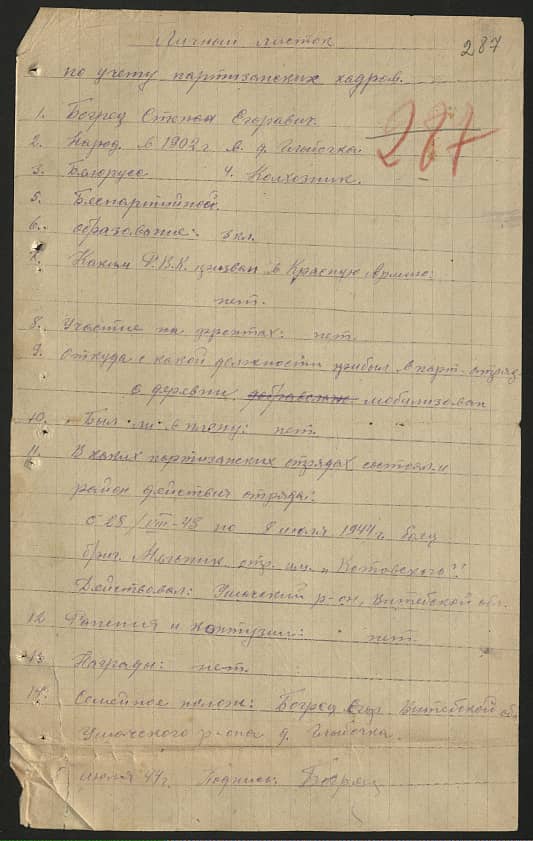 287
Личный листок
по учету партизанских кадров.
287
1. Богрец Степан Егоравич
2. Народ. в 1902 г в. д. Глыбочка.
3. Бялорусс 4. Колхозник.
5. Беспартийной.
6. образование: 3 кл.
7. Каким Р.В.К. призван в Красную Армию:
нет.
8. Участие на фронтах: нет.
9. Откуда с какой должности прибыл в парт-отряд
с деревни добравольн мобилизован
10. Был ли в плену: нет.
11. В каких партизанских отрядах состоял и
район действия отряда:
с 25/VIII-43 по 8 июля 1944 г. боец
бриг. Мельник отр. им. „Котовского"
Действовал: Ушачский р-он, Витебской обл.
12 Ранения и контузии: нет.
13 Награды: нет.
14. Семейное полож: Богрец Витебской об.
Ушачского р-она д. Глыбочка.
июля 44 г. Подпись: Богрец